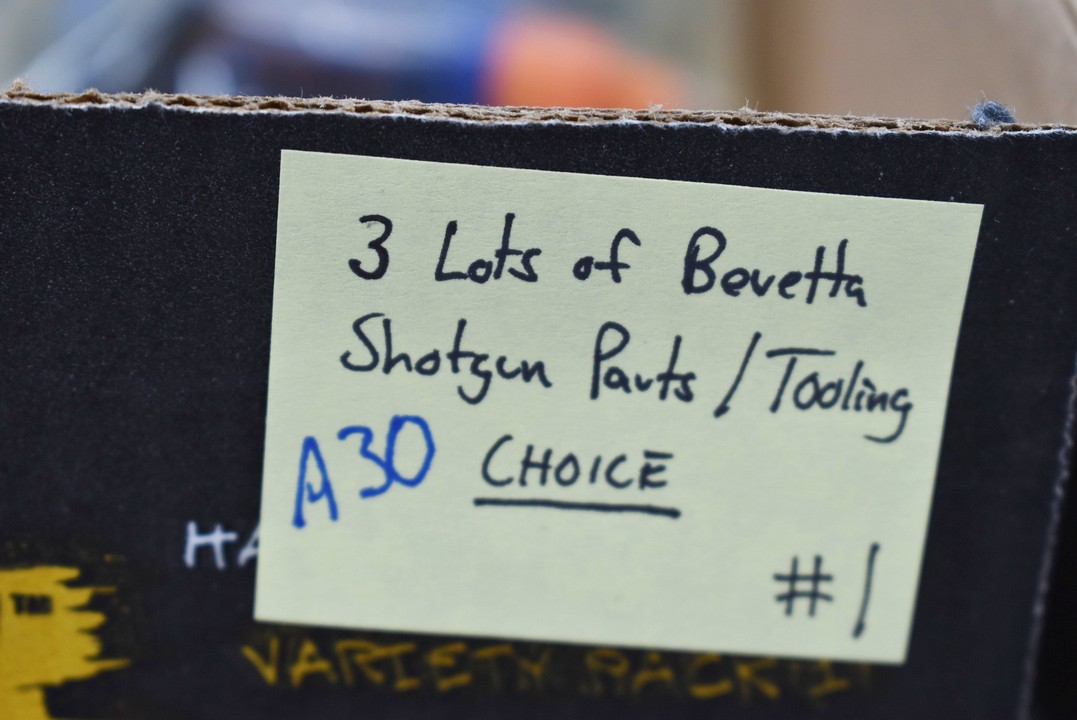 3 Lots of Beretta
Shotgun Parts / Tooling
A30 CHOICE
#1
HA
TM
VARIETY PACK